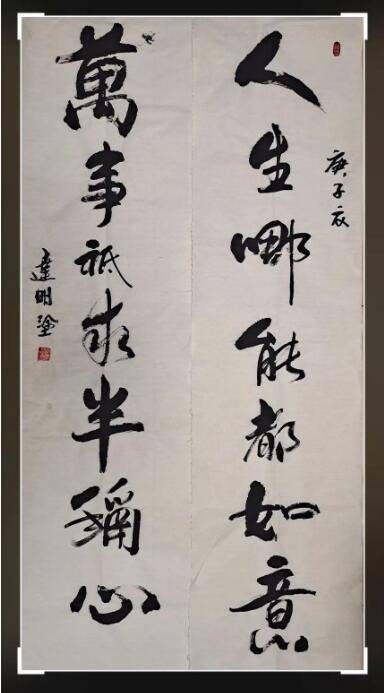 庚子
人生哪能都如意
萬事祗求半稱心
達明塗